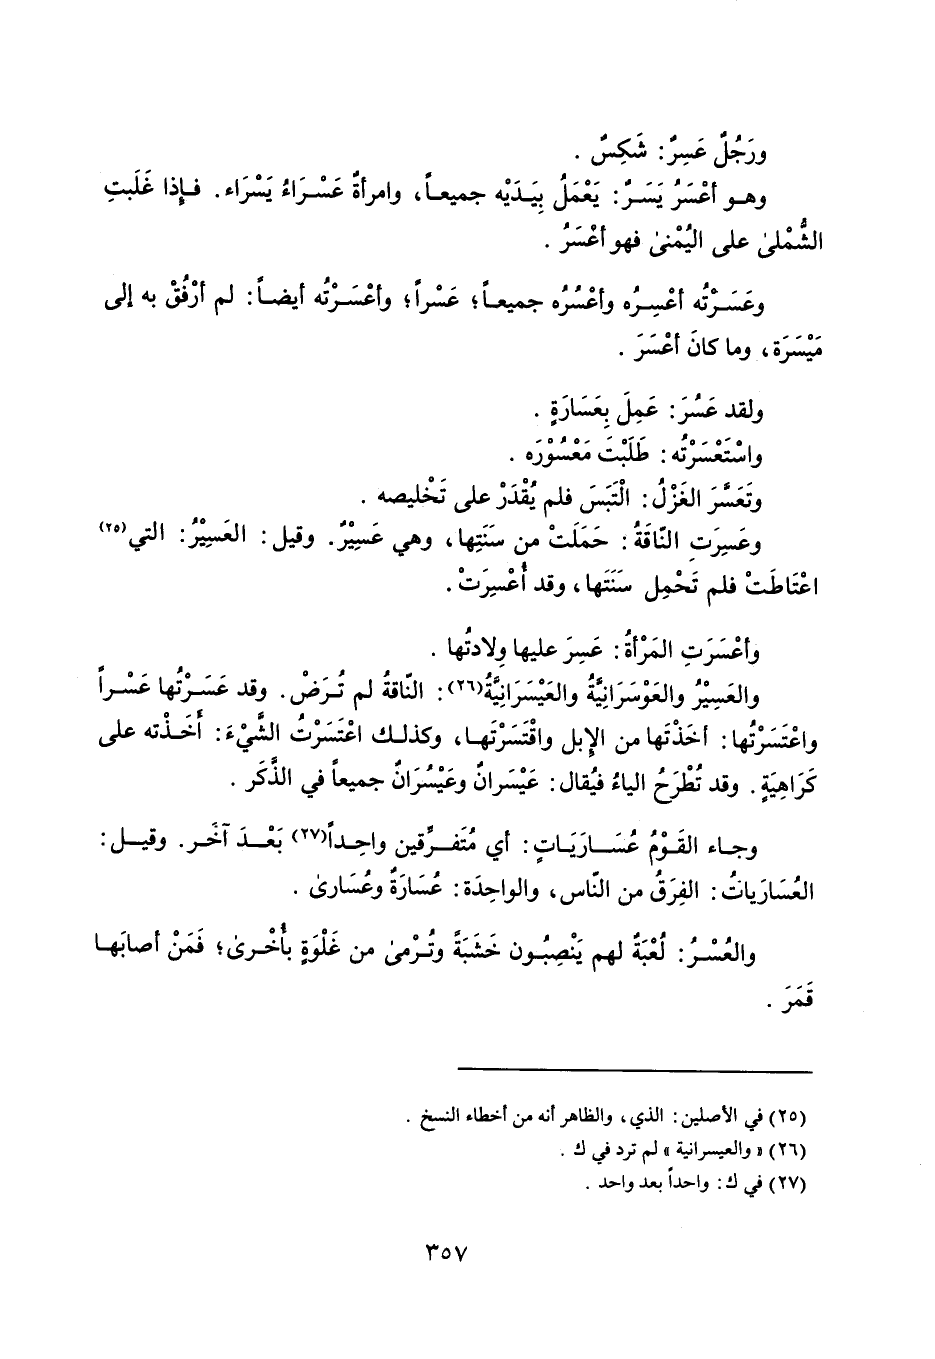 ورَجُلٌ عَسِرٌ: شَكِسٌ .
وهـو أعْسَرُ يَسَـرٌ: يَعْمَلُ بِيَـدَيْه جميعـاً، وامرأةٌ عَسْـرَاءُ يَسْرَاء. فـإذا غَلَبتِ
الشُّمْلىٰ على اليُمْنىٰ فهو أعْسَرُ .
وعَسَـرْتُه أعْسِـرُه وأعْسُرُه جميعـاً؛ عَسْراً؛ وأعْسَـرْتُه أيضـاً: لم أرْفُقْ به إلى
مَيْسَرَة، وما كانَ أعْسَرَ .
ولقد عَسُرَ: عَمِلَ بِعَسَارَةٍ .
واسْتَعْسَرْتُه: طَلَبْتَ مَعْسُوْرَه .
وتَعَسَّرَ الغَزْلُ: الْتَبَسَ فلم يُقْدَرْ على تَخْليصه .
وعَسِرَتِ النّاقَةُ: حَمَلَتْ من سَنَتِها، وهي عَسِيْرٌ. وقيل: العَسِيْرُ: التي(٢٥)
اعْتَاطَتْ فلم تَحْمِل سَنَتَها، وقد أُعْسِرَتْ.
وأعْسَرَتِ المَرْأةُ: عَسِرَ عليها وِلادَتُها .
والعَسِيْرُ والعَوْسَرَانِيَّةُ والعَيْسَرَانِيَّةُ(٢٦): النّاقةُ لم تُـرَضْ. وقد عَسَـرْتُها عَسْـراً
واعْتَسَرْتُها: أخَذْتَها من الإِبل واقْتَسَرْتَهـا، وكذلـك اعْتَسَرْتُ الشَّيْءَ: أَخَـذْته على
كَرَاهِيَةٍ. وقد تُطْرَحُ الياءُ فيُقال: عَيْسَرانٌ وعَيْسُرَانٌ جميعاً في الذَّكَر .
وجـاء القَـوْمُ عُسَـــارَيَـاتٍ: أي مُتَفـرِّقين واحِـداً(٢٧) بَعْـدَ آخَـر. وقيـل:
العُسَارَياتُ: الفِرَقُ من النّاس، والواحِدَة: عُسَارَةٌ وعُسَارىٰ .
والعُسْـرُ: لُعْبَةٌ لهم يَنْصِبُـون خَشَبَةً وتُـرْمىٰ من غَلْوَةٍ بأُخْـرىٰ؛ فَمَنْ أصابَهـا
قَمَرَ .
(٢٥) في الأصلين: الذي، والظاهر أنه من أخطاء النسخ .
(٢٦) « والعيسرانية » لم ترد في ك .
(٢٧) في ك: واحداً بعد واحد .
٣٥٧